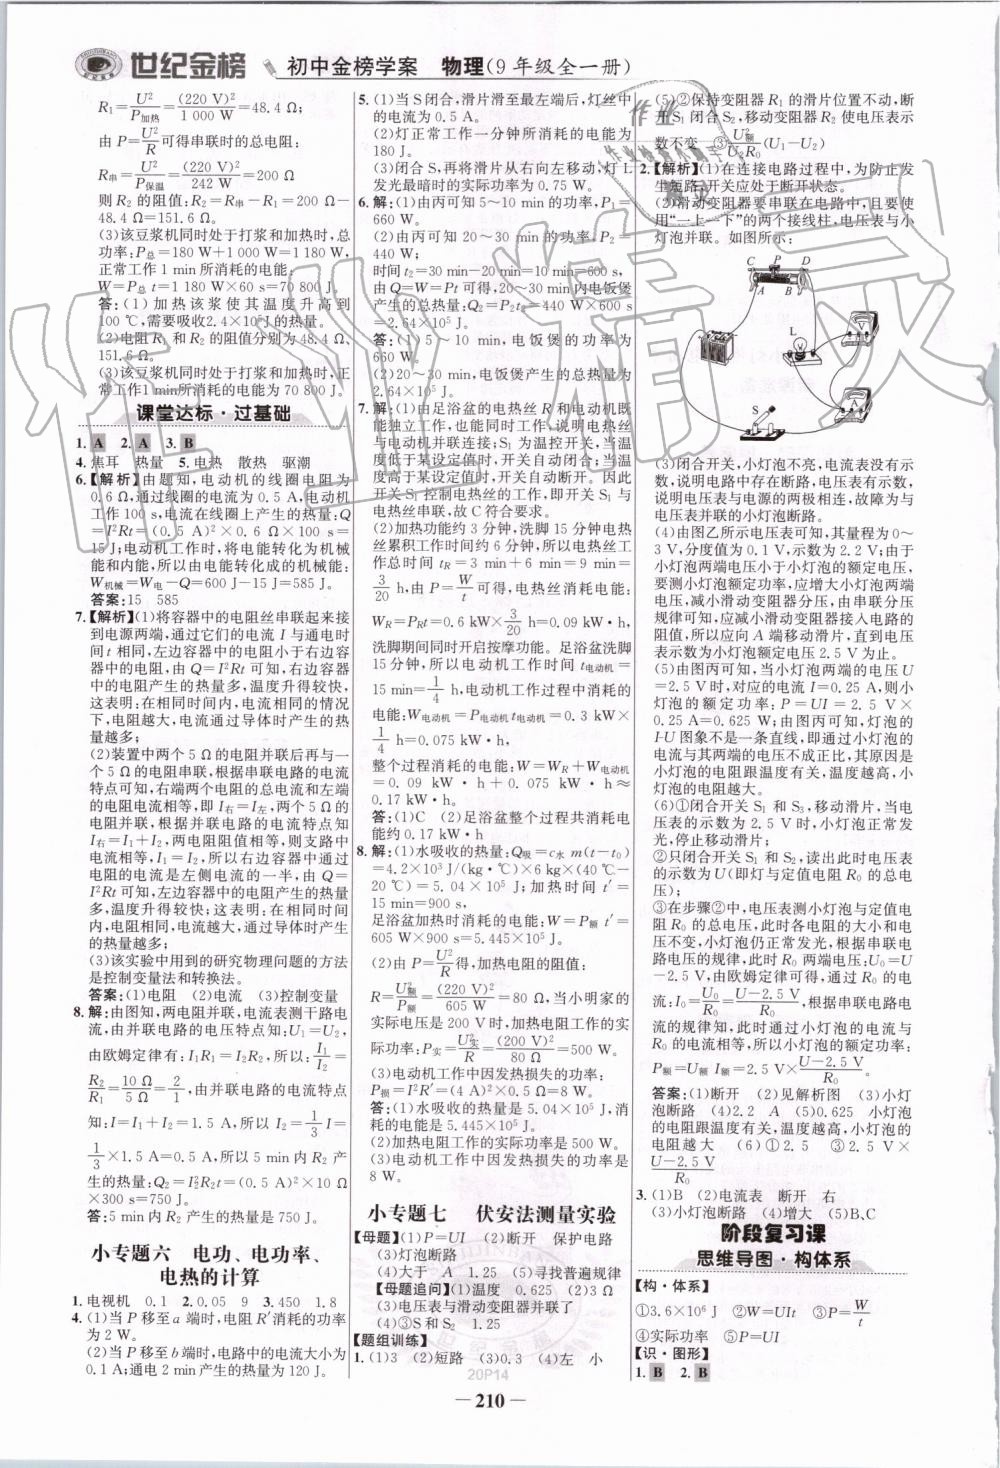 世纪金榜 初中金榜学案 物理(9年级全一册)
R₁=U²/P加热=(220 V)²/1 000 W=48.4 Ω;
由 P=U²/R可得串联时的总电阻:
R串=U²/P保温=(220 V)²/242 W=200 Ω
则 R₂ 的阻值:R₂=R串-R₁=200 Ω-
48.4 Ω=151.6 Ω。
(3)该豆浆机同时处于打浆和加热时,总
功率:P总=180 W+1 000 W=1 180 W,
正常工作 1 min 所消耗的电能:
W=P总t=1 180 W×60 s=70 800 J。
答:(1)加热该浆使其温度升高到
100 ℃,需要吸收2.4×10⁵J的热量。
(2)电阻 R₁ 和 R₂ 的阻值分别为 48.4 Ω、
151.6 Ω。
(3)该豆浆机同时处于打浆和加热时,正
常工作1 min所消耗的电能为 70 800 J。
课堂达标·过基础
1. A 2. A 3. B
4. 焦耳 热量 5. 电热 散热 驱潮
6.【解析】由题知,电动机的线圈电阻为
0.6 Ω,通过线圈的电流为 0.5 A,电动机
工作 100 s,电流在线圈上产生的热量:Q
=I²Rt=(0.5 A)²×0.6 Ω×100 s=
15 J;电动机工作时,将电能转化为机械
能和内能,所以由电能转化成的机械能:
W机械=W电-Q=600 J-15 J=585 J。
答案:15 585
7.【解析】(1)将容器中的电阻丝串联起来接
到电源两端,通过它们的电流 I 与通电时
间 t 相同,左边容器中的电阻小于右边容器
中的电阻,由 Q=I²Rt 可知,右边容器
中的电阻产生的热量多,温度升得较快,
这表明:在相同时间内,电流相同的情况
下,电阻越大,电流通过导体时产生的热
量越多;
(2)装置中两个 5 Ω的电阻并联后再与一
个 5 Ω 的电阻串联,根据串联电路的电流
特点可知,右端两个电阻的总电流和左端
的电阻电流相等,即 I右=I左,两个 5 Ω的
电阻并联,根据并联电路的电流特点知
I右=I₁+I₂,两电阻阻值相等,则支路中
电流相等,I₁=I₂,所以右边容器中通过
电阻的电流是左侧电流的一半,由 Q=
I²Rt 可知,左边容器中的电阻产生的热量
多,温度升得较快;这表明:在相同时间
内,电阻相同时,电流越大,导体时产生
的热量越多;
(3)该实验中用到的研究物理问题的方法
是控制变量法和转换法。
答案:(1)电阻 (2)电流 (3)控制变量
8. 解:由图知,两电阻并联,电流表测干路电
流,由并联电路的电压特点知:U₁=U₂,
由欧姆定律有:I₁R₁=I₂R₂,所以:I₁/I₂=
R₂/R₁=10 Ω/5 Ω=2/1,由并联电路的电流特点
知:I=I₁+I₂=1.5 A,所以 I₂=1/3 I=
1/3×1.5 A=0.5 A,所以 5 min 内 R₂ 产
生的热量:Q=I₂²R₂t=(0.5 A)²×10 Ω
×300 s=750 J。
答:5 min内 R₂ 产生的热量是 750 J。
小专题六 电功、电功率、
电热的计算
1. 电视机 0.1 2. 0.05 9 3. 450 1.8
4. (1)当 P 移至 a 端时,电阻 R′消耗的功率
为 2 W。
(2)当 P 移至 b 端时,电路中的电流大小为
0.1 A;通电 2 min产生的热量为 120 J。
5. (1)当 S 闭合,滑片滑至最左端后,灯丝中
的电流为 0.5 A。
(2)灯正常工作一分钟所消耗的电能为
180 J。
(3)闭合 S,再将滑片从右向左移动,灯 L
发光最暗时的实际功率为 0.75 W。
6. 解:(1)由丙可知 5~10 min 的功率,P₁=
660 W。
(2)由丙可知 20~30 min 的功率,P₂=
440 W;
时间 t₂=30 min-20 min=10 min=600 s,
由 Q=W=Pt 可得,20~30 min内电饭煲
产生的总热量:Q₂=P₂t₂=440 W×600 s
=2.64×10⁵ J。
答:(1) 5~10 min,电饭煲的功率为
660 W。
(2)20~30 min,电饭煲产生的总热量为
2.64×10⁵ J。
7. 解:(1)由足浴盆的电热丝 R 和电动机既
能独立工作,也能同时工作,说明电热丝
与电动机并联连接;S₁ 为温控开关,当温
度低于某设定值时,开关自动闭合,当温
度高于某设定值时,开关自动断开。因此
开关 S₁ 控制电热丝的工作,即开关 S₁ 与
电热丝串联,故 C 符合要求。
(2)加热功能约 3 分钟,洗脚 15 分钟电热
丝累积工作时间约 6 分钟,所以电热丝工
作总时间 tR=3 min+6 min=9 min=
3/20 h,由 P=W/t可得,电热丝消耗电能:
WR=PRt=0.6 kW×3/20 h=0.09 kW·h,
洗脚期间同时开启按摩功能。足浴盆洗脚
15 分钟,所以电动机工作时间 t电动机=
15 min=1/4 h,电动机工作过程中消耗的
电能:W电动机=P电动机t电动机=0.3 kW×
1/4 h=0.075 kW·h,
整个过程消耗的电能:W=WR+W电动机
=0.09 kW·h+0.075 kW·h≈
0.17 kW·h。
答:(1)C (2)足浴盆整个过程共消耗电
能约 0.17 kW·h
8. 解:(1)水吸收的热量:Q吸=c水 m(t-t₀)
=4.2×10³ J/(kg·℃)×6 kg×(40 ℃-
20 ℃)=5.04×10⁵ J;加热时间 t′=
15 min=900 s,
足浴盆加热时消耗的电能:W=P额 t′=
605 W×900 s=5.445×10⁵ J。
(2)由 P=U²/R得,加热电阻的阻值:
R=U额²/P额=(220 V)²/605 W=80 Ω,当小明家的
实际电压是 200 V时,加热电阻工作的实
际功率:P实=U实²/R=(200 V)²/80 Ω=500 W。
(3)电动机工作中因发热损失的功率:
P损=I²R′=(4 A)²×0.5 Ω=8 W。
答:(1)水吸收的热量是 5.04×10⁵ J,消
耗的电能是 5.445×10⁵ J。
(2)加热电阻工作的实际功率是 500 W。
(3)电动机工作中因发热损失的功率是
8 W。
小专题七 伏安法测量实验
【母题】(1)P=UI (2)断开 保护电路
(3)灯泡断路
(4)大于 A 1.25 (5)寻找普遍规律
【母题追问】(1)温度 0.625 (2)3 Ω
(3)电压表与滑动变阻器并联了
(4)③S 和 S₂ 1.25
【题组训练】
1. (1)3 (2)短路 (3)0.3 (4)左 小
(5)②保持变阻器 R₁ 的滑片位置不动,断
开 S₁ 闭合 S₂,移动变阻器 R₂ 使电压表示
数不变 ③U额/U₂R₀(U₁-U₂)
2.【解析】(1)在连接电路过程中,为防止发
生短路,开关应处于断开状态。
(2)滑动变阻器要串联在电路中,且要使
用“一上一下”的两个接线柱,电压表与小
灯泡并联。如图所示:
C P D
A B
L
V
S
A
(3)闭合开关,小灯泡不亮,电流表没有示
数,说明电路中存在断路,电压表有示数,
说明电压表与电源的两极相连,故障为与
电压表并联的小灯泡断路。
(4)由图乙所示电压表可知,其量程为 0~
3 V,分度值为 0.1 V,示数为 2.2 V;由于
小灯泡两端电压小于小灯泡的额定电压,
要测小灯泡额定功率,应增大小灯泡两端
电压,减小滑动变阻器分压,由串联分压
规律可知,应减小滑动变阻器接入电路的
阻值,所以应向 A 端移动滑片,直到电压
表示数为小灯泡额定电压 2.5 V为止。
(5)由图丙可知,当小灯泡两端的电压 U
=2.5 V时,对应的电流 I=0.25 A,则小
灯泡的额定功率:P=UI=2.5 V×
0.25 A=0.625 W;由图丙可知,灯泡的
I-U 图象不是一条直线,即通过小灯泡的
电流与其两端的电压不成正比,其原因是
小灯泡的电阻跟温度有关,温度越高,小
灯泡的电阻越大。
(6)①闭合开关 S₁ 和 S₂,移动滑片,当电
压表的示数为 2.5 V时,小灯泡正常发
光,停止移动滑片;
②只闭合开关 S₁ 和 S₂,读出此时电压表
的示数为 U(即灯与定值电阻 R₀ 的总电
压);
③在步骤②中,电压表测小灯泡与定值电
阻 R₀ 的总电压,此时各电阻的大小和电
压不变,小灯泡仍正常发光,根据串联电
路电压规律可知,R₀ 两端电压:U₀=U
-2.5 V,由欧姆定律可得,通过 R₀ 的电
流:I₀=U₀/R₀=U-2.5 V/R₀,根据串联电路电
流的规律知,此时通过小灯泡的电流与
R₀ 的电流相等,所以小灯泡的额定功率:
P额=U额 I额=2.5 V×U-2.5 V/R₀。
答案:(1)断开 (2)见解析图 (3)小灯
泡断路 (4)2.2 A (5)0.625 小灯泡
的电阻跟温度有关,温度越高,小灯泡的
电阻越大 (6)①2.5 ③2.5 V×
U-2.5 V/R₀
3. (1)B (2)电流表 断开 右
(3)小灯泡断路 (4)增大 (5)B、C
阶段复习课
思维导图·构体系
【构·体系】
①3.6×10⁶ J ②W=UIt ③P=W/t
④实际功率 ⑤P=UI
【识·图形】
1. B 2. B
20P14
— 210 —